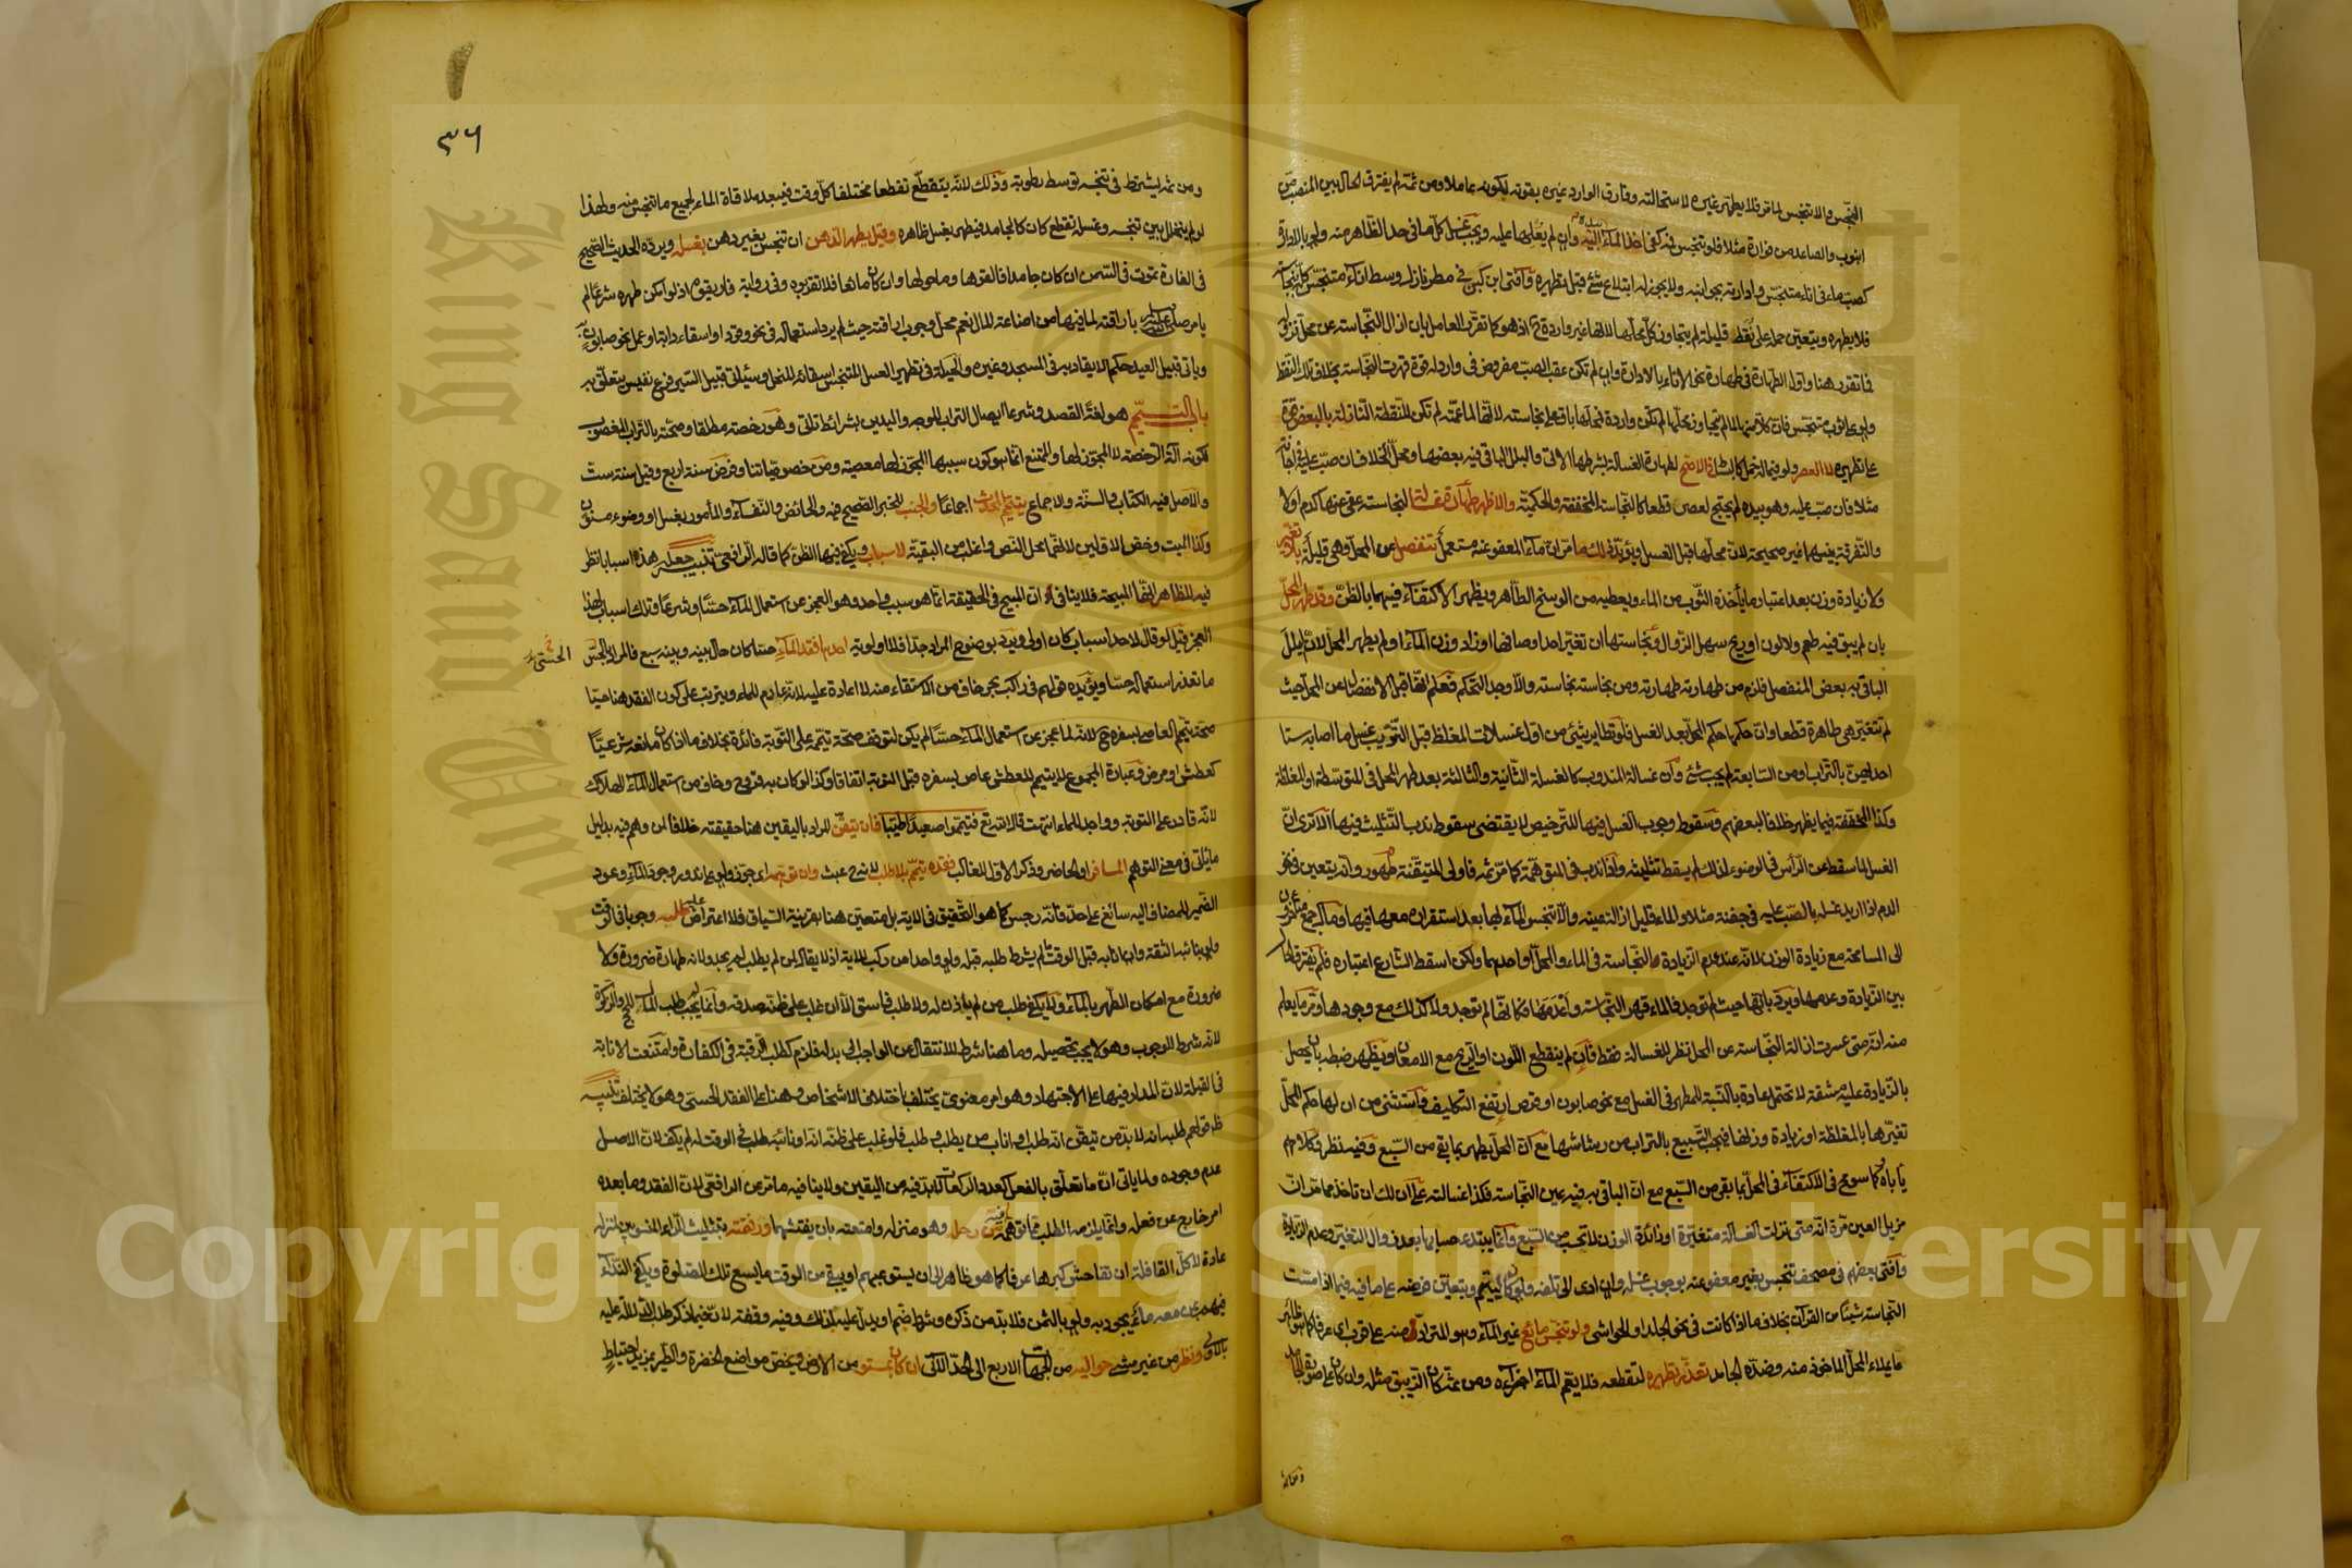 النجس والا تنجس لما مر فلا يطهر غيره لاستحالته وفارق الوارد غيره بقوته لكونه عاملا ومن ثمة لم يفترق الحال بين المنصب من
انبوب والصاعد من فوارة مثلا فلو تنجس فمه كفى اخذ الماء اليه وان لم يعلها عليه ويجب غسل كل ما في حد الظاهر منه ولو بالادارة
كصب ماء في اناء متنجس وادارته بجوانبه ولا يجوز له ابتلاع شئ قبل تطهيره وافتى ابن كبن في مطر نازل وسط اناء متنجس
فلا يطهره ويتعين حمله على نقط قليلة لم يتجاوز كل محلها لانها غير واردة اذ هو كما تقرر العامل بان ازال النجاسة عن محل نزوله
فما تقرر هنا واول الطهارة في طهارة نحو الاناء بالادارة وان لم تكن عقب الصب مفروض في وارد له قوة قهرت النجاسة بخلاف تلك النقط
ولو على ثوب متنجس فان كلا منها لما لم يتجاوز محلها لم تكن واردة فمحلها باق على نجاسته
على تطهيره لا العصر ولو فيما له خمل كالبساط في الاصح لطهارة الغسالة بشرطها الآتي والبلل الباقي فيه بعضها ومحل الخلاف ان صب عليه في اجانة
مثلا فان صب عليه وهو بيده لم يحتج لعصر قطعا كالنجاسة المخففة والحكمية والاظهر طهارة غسالة لنجاسة عفي عنها كدم او لا
والتفرقة بينهما غير صحيحة لان محلها قبل الغسل ما مر ان ماء المعفو عنه مستعمل تنفصل عن المحل وهي قليلة بلا تغير
ولا زيادة وزن بعد اعتبار ما يأخذه الثوب من الماء ويعطيه من الوسخ الطاهر ويظهر الاكتفاء فيهما بالظن وقد طهر المحل
بان لم يبق فيه طعم ولا لون او ريح سهل الزوال ونجاستها ان تغير احد اوصافها او زاد وزن الماء او لم يطهر المحل لان البلل
الباقي به بعض المنفصل فلزم من طهارته طهارته ومن نجاسته نجاسته والا وجد التحكم فعلم انها قبل الانفصال عن المحل حيث
لم تتغير هي طاهرة قطعا وان حكمها حكم المحل بعد الغسل فلو تطاير شئ من اول غسلات المغلظ قبل التتريب غسل ما اصابه ستا
احداهن بالتراب او من السابعة لم يجب شئ وان غسالة المندوب كالغسلة الثانية والثالثة بعد طهر المحل في المتوسطة او المغلظة
وكذا المخففة فيما يظهر خلافا لبعضهم وسقوط وجوب الغسل فيها للترخيص لا يقتضي سقوط ندب التثليث فيها الا ترى ان
الغسل لما سقط عن الرأس في الوضوء لذلك لم يسقط تثليثه واذا ندب في المتوهمة كما مر ثمه فاولى المتيقنة وانه يتعين في نحو
الدم اذا اريد غسله بالصب عليه في جفنة مثلا والماء قليل ازالة عينه والا تنجس الماء بها بعد استقراره معها فيها
الى المسامحة مع زيادة الوزن لانه عند عدم الزيادة النجاسة في الماء والمحل او احدهما ولكن اسقط الشارع اعتباره فلم يفترق الحال
بين الزيادة وعدمها ويرد بانها حيث لم توجد فالماء قهر النجاسة واعدمها فكأنها لم توجد ولا كذلك مع وجودها ومر ما يعلم
منه انه متى عسرت ازالة النجاسة عن المحل نظر للغسالة فقط فان لم ينقطع اللون او الريح مع الامعان ويظهر ضبطه بان يحصل
بالزيادة عليه مشقة لا تحتمل عادة بالنسبة للمطهر في الغسل مع نحو صابون او قرص ارتفع التكليف واستثنى من ان لها حكم المحل
تغيرها بالمغلظة او زيادة وزنها فيجب التسبيع بالتراب من رشاشها مع ان المحل يطهر بما بقي من السبع وفيه نظر وكلامهم
يأباه فكما سومح في الاكتفاء في المحل بما بقي من السبع مع ان الباقي به فيه عين النجاسة فكذا غسالته على ان لك ان تأخذ مما مر ان
مزيل العين مرة انه متى نزلت الغسالة متغيرة او زائدة الوزن لا تحسب من السبع وانما يبتدئ حسابها بعد زوال التغير وعدم الزيادة
وافتى بعضهم في مصحف تنجس بغير معفو عنه بوجوب غسله وان ادى الى تلفه ولو كان ليتيم ويتعين فرضه على ما فيه فيما اذا مست
النجاسة شيئا من القرآن بخلاف ما اذا كانت في نحو الجلد او الحواشي ولو تنجس مائع غير الماء وهو المتراد منه على قرب
ما يملأ المحل المأخوذ منه وضده الجامد تعذر تطهيره لتقطعه فلا يعم الماء اجزاءه ومن ثمة كان الزيبق مثله وان كان على صورة الجامد
٣٦
ومن ثمه يشترط في تنجسه توسط رطوبة وذلك لانه يتقطع تقطعا مختلفا كل وقت فيبعد ملاقاة الماء لجميع ما تنجس منه ولهذا
لو لم يتخلل بين تنجسه وغسله تقطع كان كالجامد فيطهر بغسل ظاهره وقيل يطهر الدهن ان تنجس بغير دهن بغسله ويرده الحديث الصحيح
في الفارة تموت في السمن ان كان جامدا فالقوها وما حولها وان كان مائعا فلا تقربوه وفي رواية فاريقوه اذ لو امكن طهره شرعا لم
يامر صلى الله عليه وسلم باراقته لما فيها من اضاعة المال نعم محل وجوب اراقته حيث لم يرد استعماله في نحو وقود او اسقاء دابة او عمل نحو صابون به
ويأتي قبيل العيد حكم الايقاد به في المسجد وغيره والحيلة في تطهير العسل المتنجس اسقاؤه للنحل وسيأتي قبيل السير فرع نفيس يتعلق به
باب التيمم هو لغة القصد وشرعا ايصال التراب للوجه واليدين بشرائط تأتي وهو رخصة مطلقا وصحته بالتراب المغصوب
لكونه آلة الرخصة لا المجوز لها والممتنع انما هو كون سببها المجوز لها معصية ومن خصوصياتنا وفرض سنة اربع وقيل سنة ست
والاصل فيه الكتاب والسنة والاجماع يتيمم المحدث اجماعا والجنب للخبر الصحيح فيه والحائض والنفساء والمأمور بغسل او وضوء مسنون
وكذا الميت وخص الاولين لانهما محل النص واغلب من البقية لاسباب ويكفي فيها الظن كما قاله الرافعي تنبيه جعله هذه اسبابا نظر
فيه للظاهر انها المبيحة فلا ينافي ان المبيح في الحقيقة انما هو سبب واحد وهو العجز عن استعمال الماء حسا او شرعا وتلك اسباب لهذا
العجز فقيل لو قال لاحد اسباب كان اولى ويرد بوضوح المراد جدا فلا اولوية احدها فقد الماء حسا كان حال بينه وبينه سبع فالمراد بالحسي
الحسي
ما تعذر استعماله حسا ويؤيده قولهم في راكب بحر خاف من الاستقاء منه لا اعادة عليه لانه عادم للماء ويترتب على كون الفقد هنا حسيا
صحة تيمم العاصي بسفره لانه لما عجز عن استعمال الماء حسا لم يكن لتوقف صحة تيممه على التوبة فائدة بخلاف ما اذا كان مانعه شرعيا
كعطش او مرض وعبارة المجموع لا يتيمم للعطش عاص بسفره قبل التوبة اتفاقا وكذا لو كان به قروح وخاف من استعمال الماء الهلاك
لانه قادر على التوبة وواجد للماء انتهت قال الله تع فتيمموا صعيدا طيبا فان تيقن المراد باليقين هنا حقيقته خلافا لمن وهم فيه بدليل
ما يأتي في معنى التوهم المسافر او الحاضر وذكر الاول للغالب فقده تيمم بلا طلب لانه ح عبث وان توهمه اي جوز ولو على ندور وجود الماء وعود
الضمير للمضاف اليه سائغ على حد فانه رجس كما هو التحقيق في الآية بل متعين هنا بقرينة السياق فلا اعتراض عليه طلبه وجوبا في الوقت
ولو بنائبه الثقة وان انابه قبل الوقت ما لم يشرط طلبه قبله ولو واحدا من ركب للآية اذ لا يقال لمن لم يطلب لم يجد ولانه طهارة ضرورة ولا
ضرورة مع امكان الطهر بالماء ولا يكفي طلب من لم يأذن له ولا طلب فاسق الا ان غلب على ظنه صدقه وانما لم يجب طلب المال للحج والزكوة
لانه شرط للوجوب وهو لا يجب تحصيله وما هنا شرط للانتقال عن الواجب الى بدله فلزم كطلب الرقبة في الكفارة وامتنعت الانابة
في القبلة لان المدار فيها على الاجتهاد وهو امر معنوي يختلف باختلاف الاشخاص وهنا على الفقد الحسي وهو لا يختلف تنبيه
ظ قولهم طلبه انه لا بد من تيقن انه طلب او اناب من يطلب وطلب فلو غلب على ظنه انه او نائبه طلب في الوقت لم يكف لان الاصل
عدم وجوده ولما يأتي ان ما تعلق بالفعل كعدد الركعات لا بد فيه من اليقين ولا ينافيه ما مر عن الرافعي لان الفقد وما بعده
امر خارج عن فعله وانما يلزمه الطلب مما توهمه فيه من رحله وهو منزله وامتعته بان يفتشهما ورفقته بتثليث الراء المنسوبين لمنزله
عادة لا كل القافلة ان تفاحش كبرها عرفا كما هو ظاهر الى ان يستوعبهم او يبقى من الوقت ما يسع تلك الصلوة ويكفي النداء
فيهم بمن معه ماء يجود به ولو بالثمن فلا بد من ذكره وشرط ضم او يدل عليه لذلك وفيه وقفة لان فيما ذكر طلب الدلالة عليه
بالاولى ونظر من غير مشي حواليه من الجهات الاربع الى الحد الآتي ان كان بمستو من الارض ويخص مواضع الخضرة والطير بمزيد احتياط
Copyright © King Saud University
King Saud University